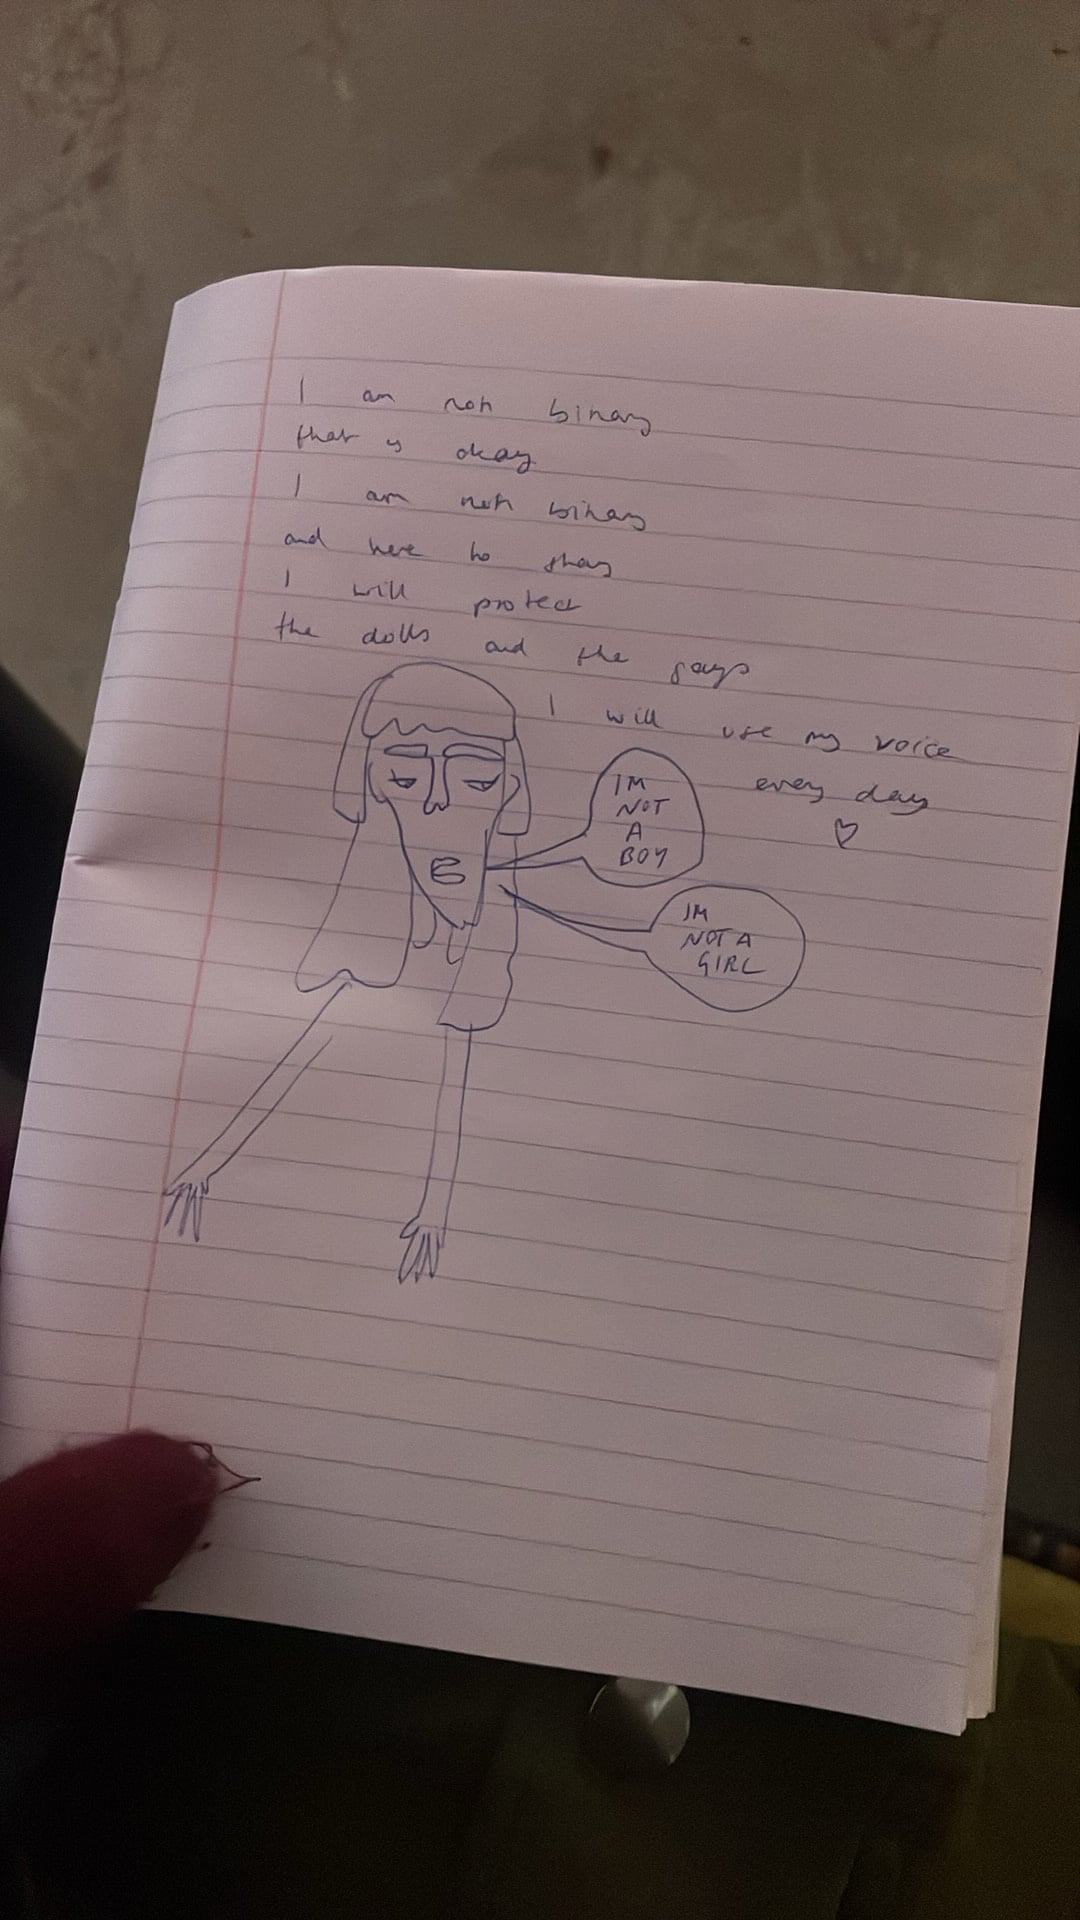 I am non binary
that is okay
I am non binary
and here to stay
I will protect
the dolls and the gays
I will use my voice
every day
IM
NOT
A
BOY
IM
NOT A
GIRL